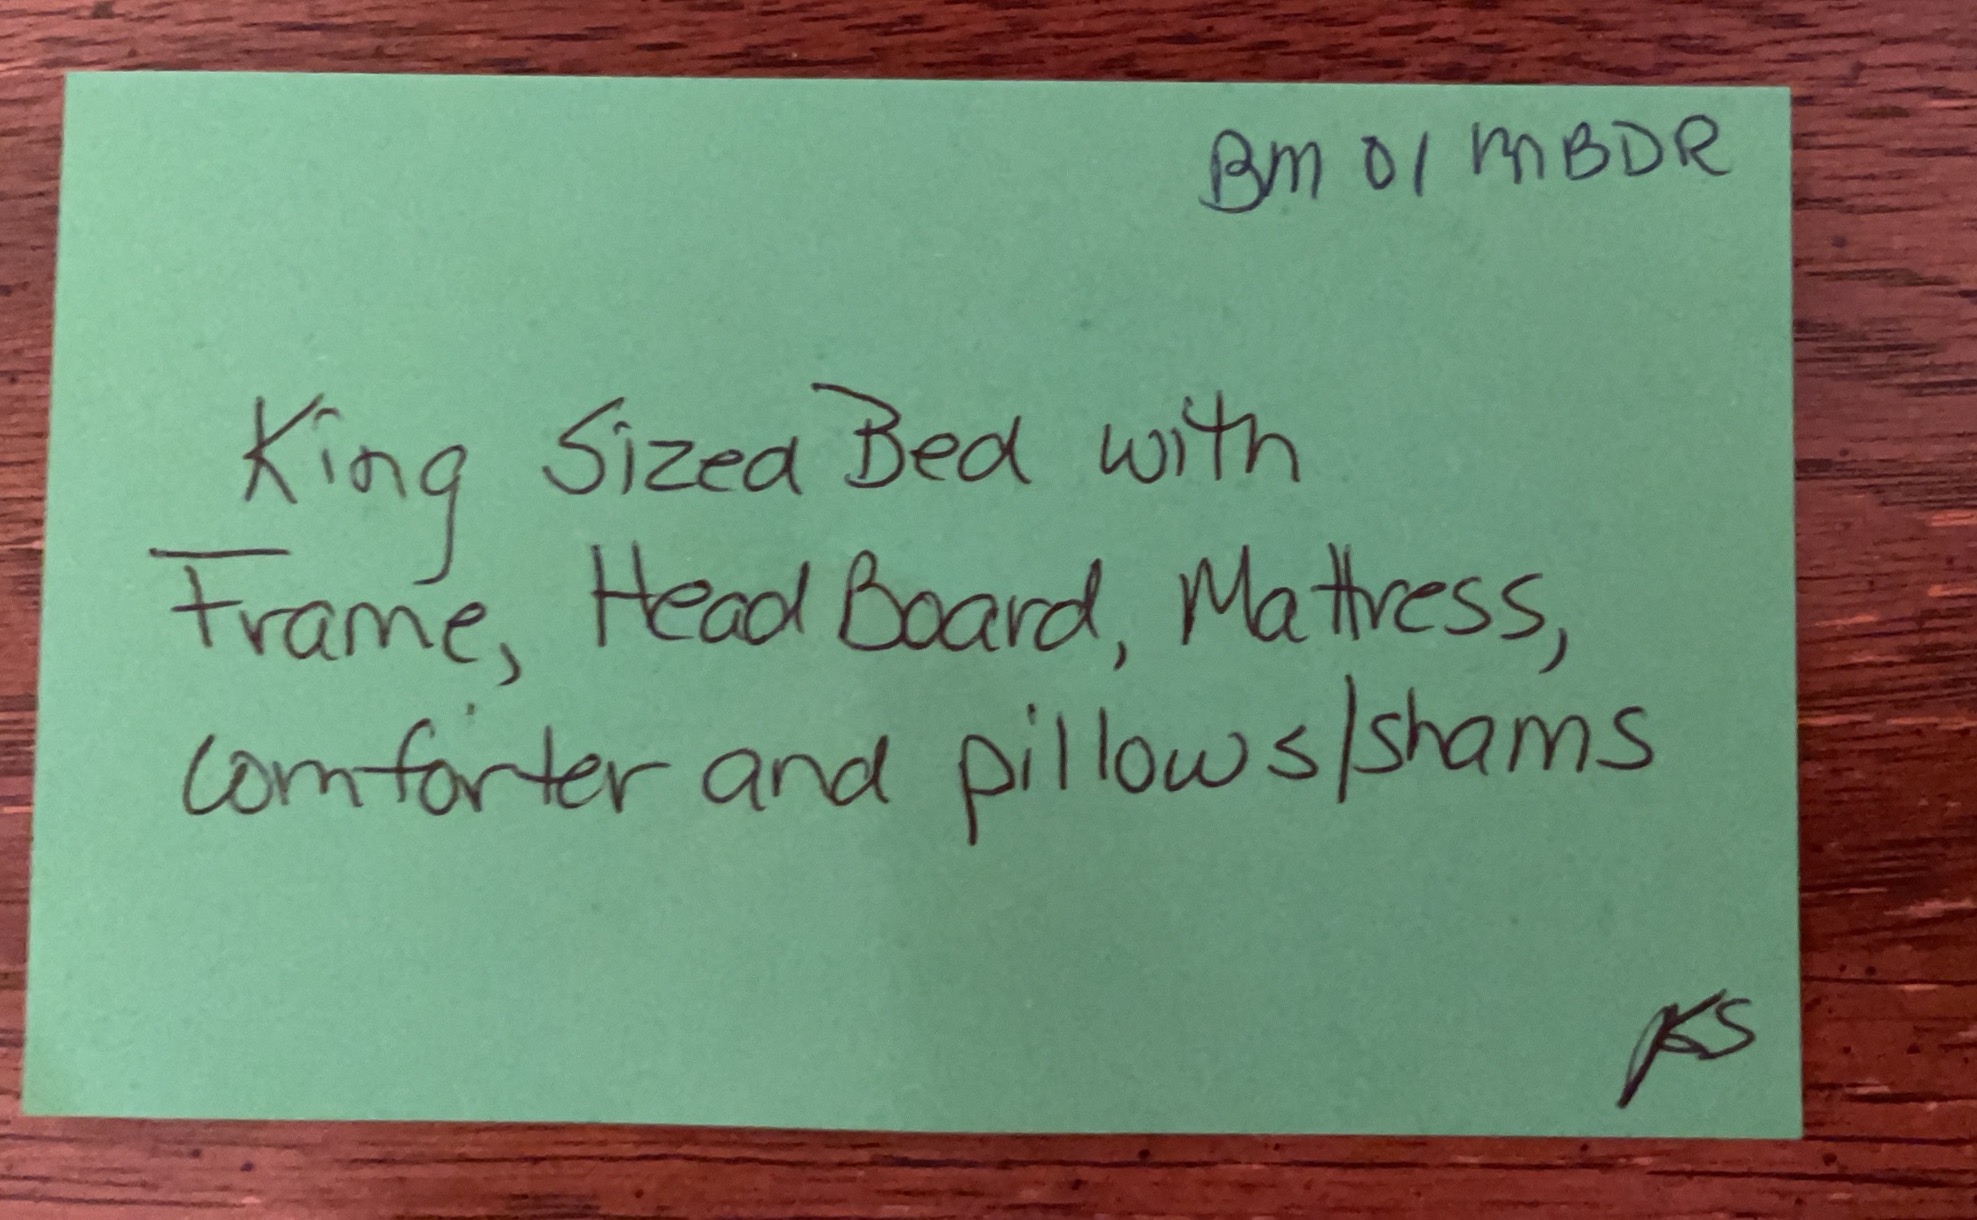 BM 01 MBDR
King Sized Bed with
Frame, Head Board, Mattress,
comforter and pillows/shams
KS